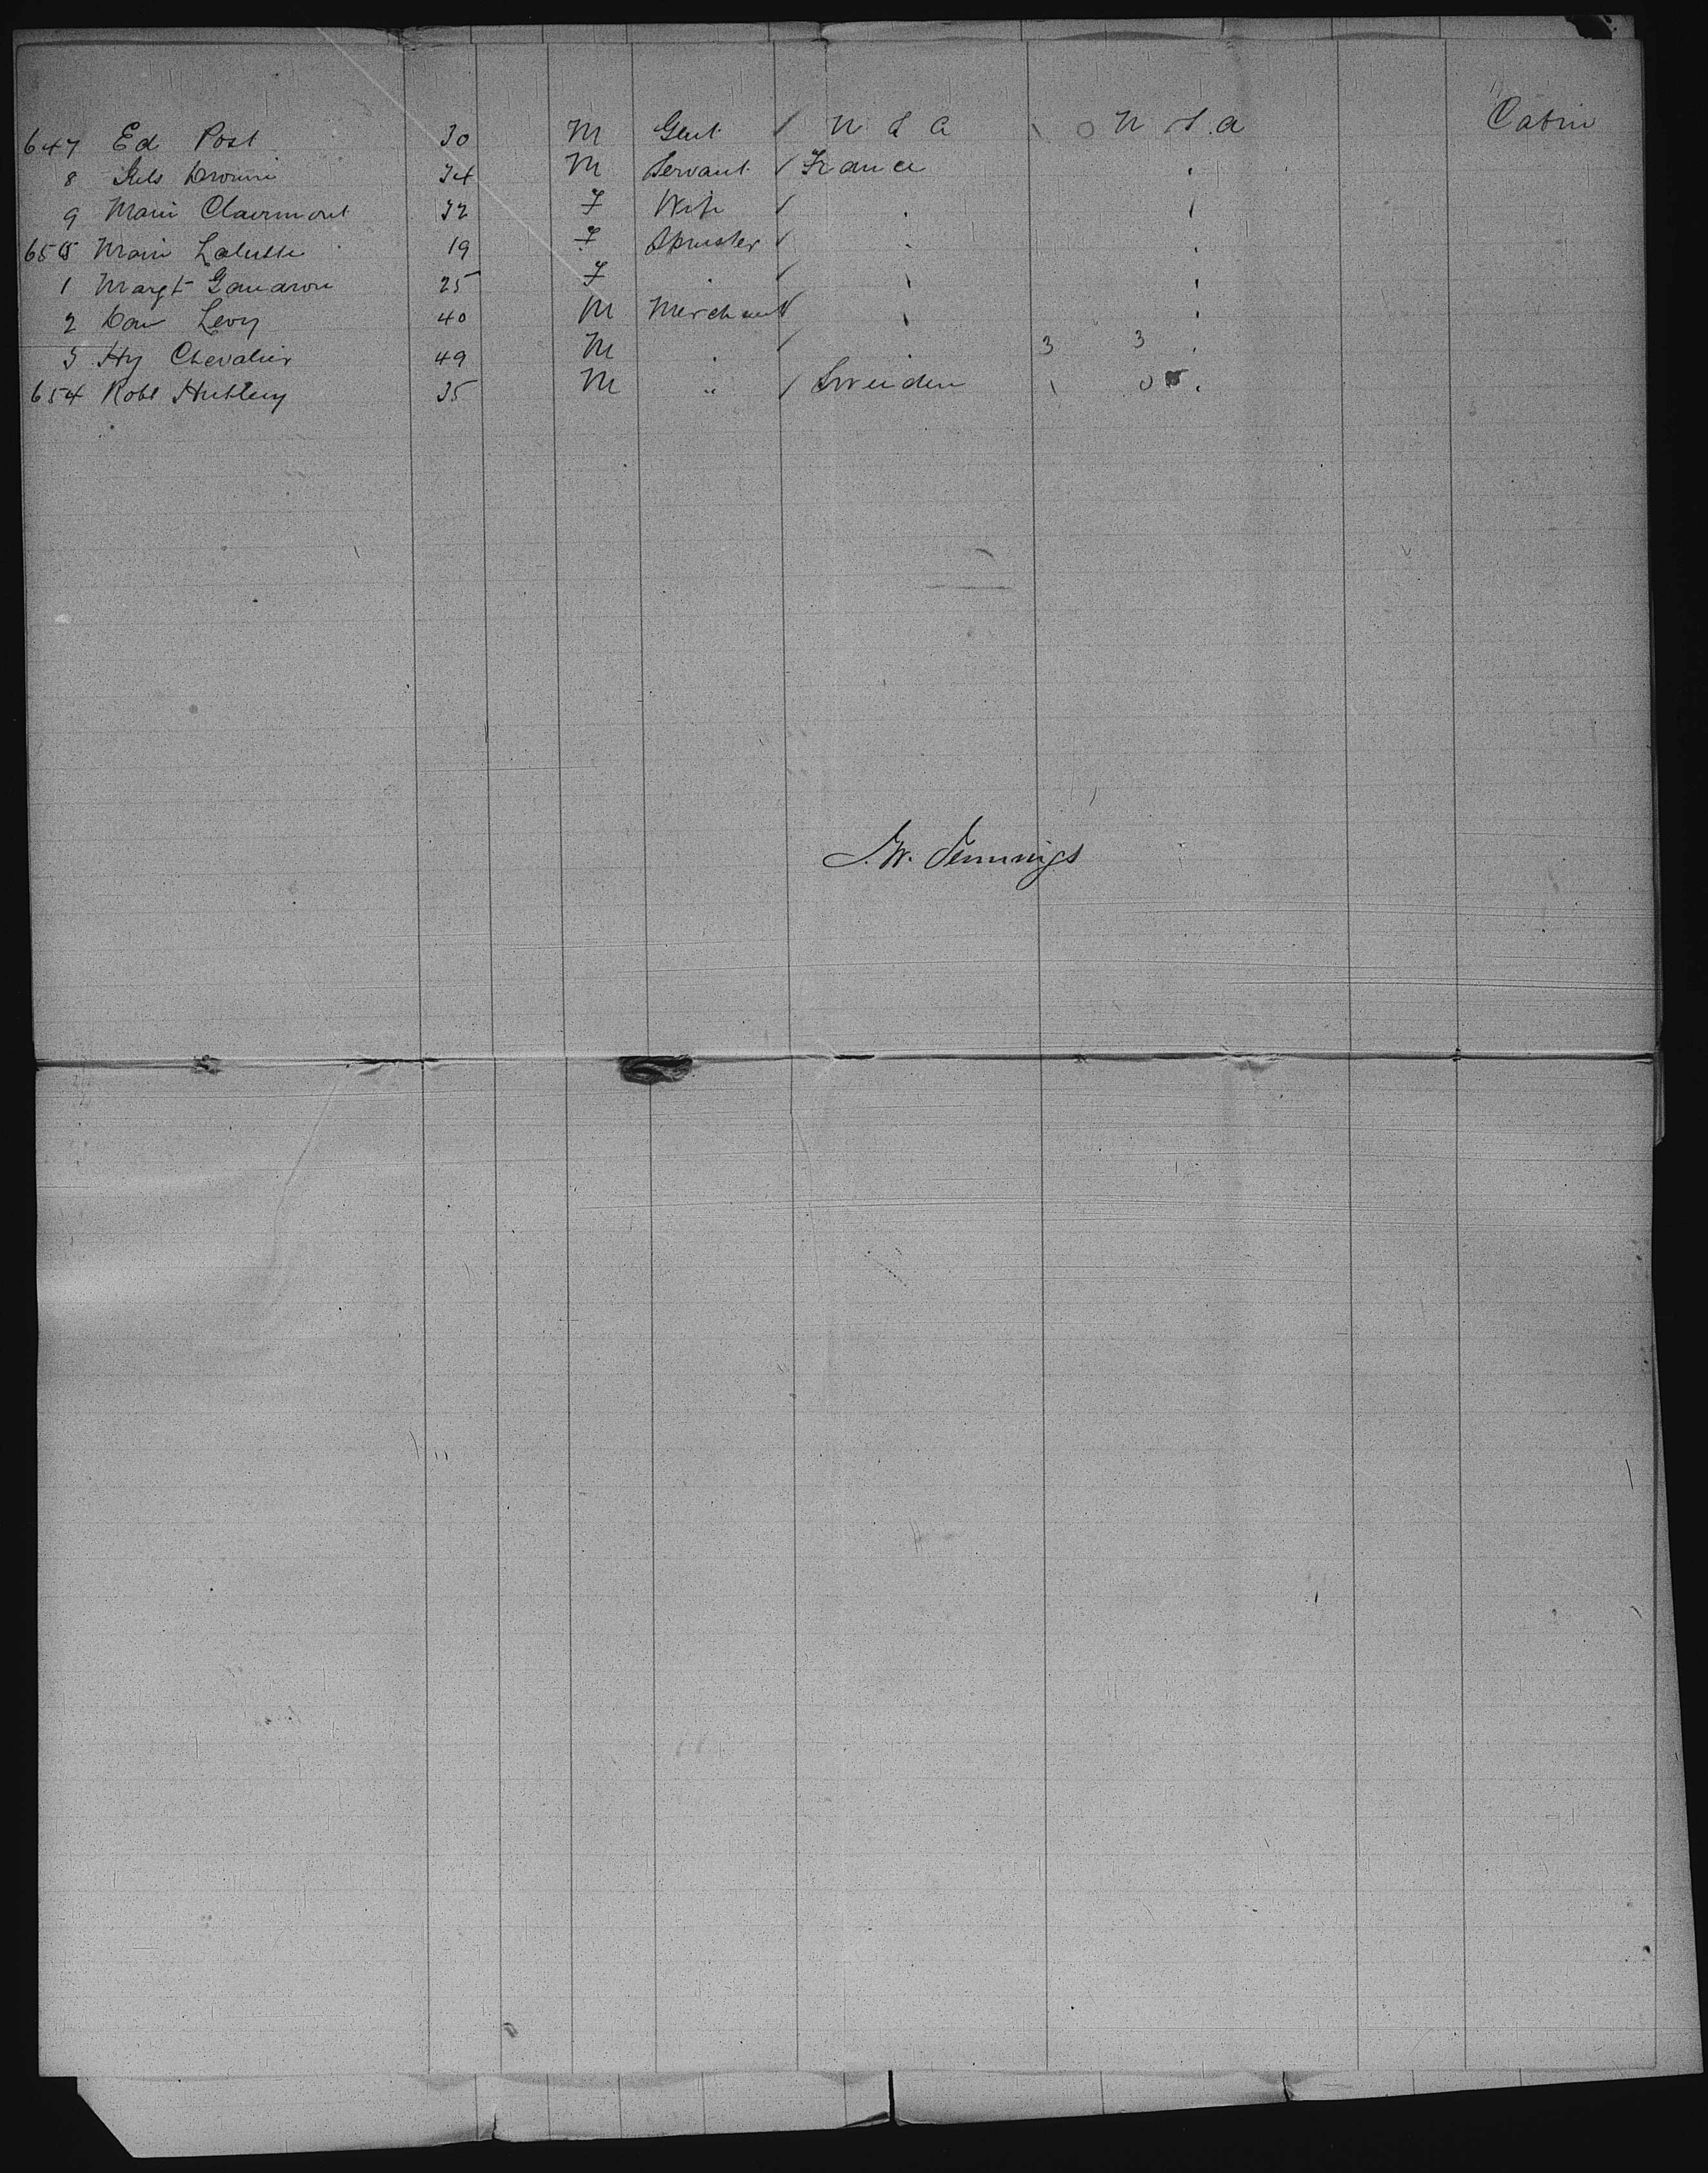 647 Ed Post 30 M Gent / U S A \ O U S. A Cabin
8 34 M Servant / France "
9 Marie Clairmont 32 F Wife / " "
650 Marie 19 F Spinster / " "
1 Margt 25 F " / " "
2 Dan Levy 40 M Merchant / " "
3 Hy Chevalier 49 M " / " 3 3 "
654 Robt 35 M " / Sweiden \ 0 "
J. W. Jennings